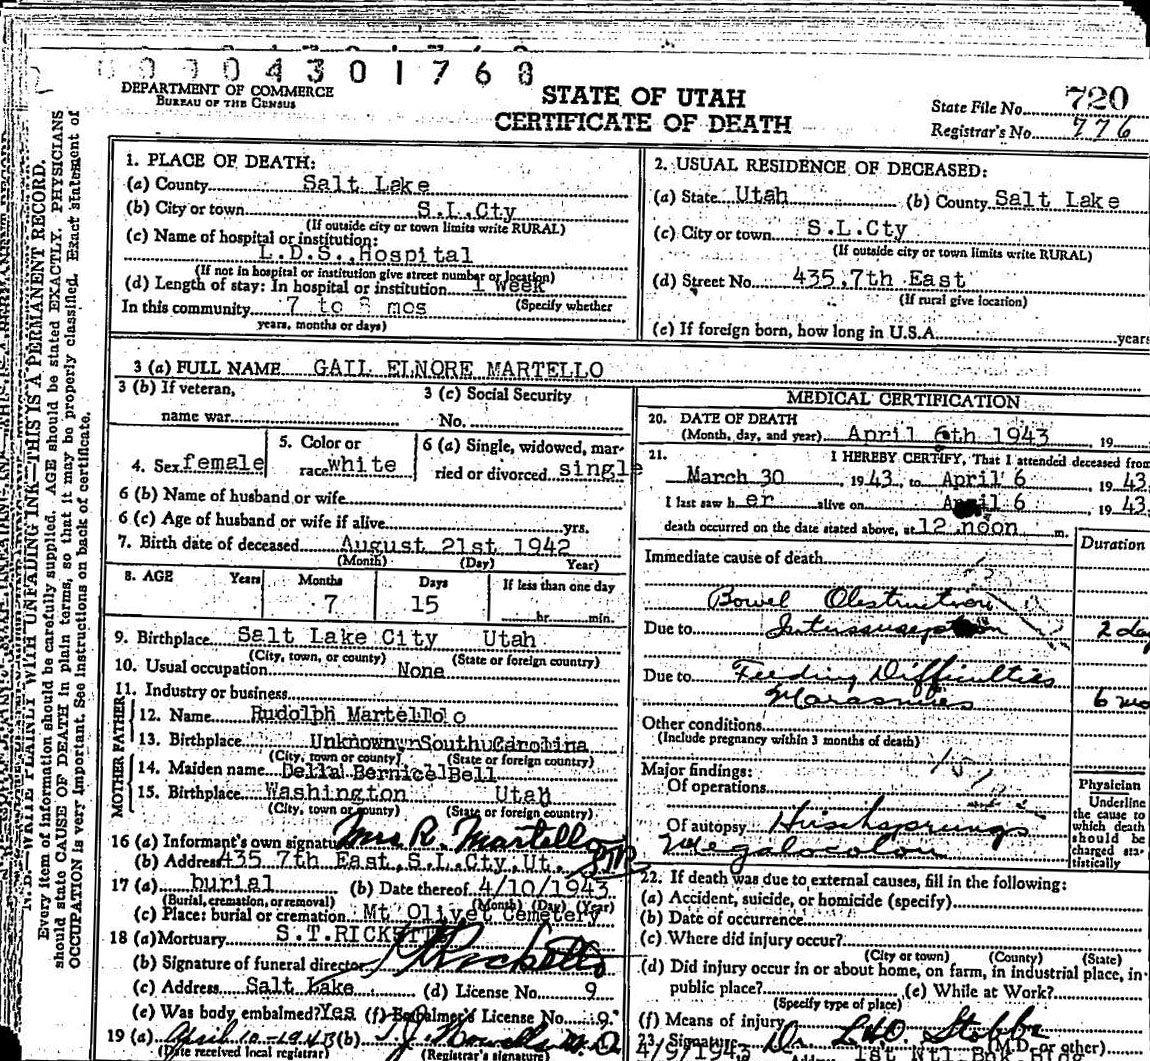 0 0 0 0 4 3 0 1 7 6 8
DEPARTMENT OF COMMERCE
BUREAU OF THE CENSUS
STATE OF UTAH
CERTIFICATE OF DEATH
State File No. 720
Registrar's No. 776
N.B.—WRITE PLAINLY WITH UNFADING INK—THIS IS A PERMANENT RECORD.
Every item of information should be carefully supplied. AGE should be stated EXACTLY. PHYSICIANS
should state CAUSE OF DEATH in plain terms, so that it may be properly classified. Exact statement of
OCCUPATION is very important. See instructions on back of certificate.
1. PLACE OF DEATH:
(a) County Salt Lake
(b) City or town S.L.Cty
(If outside city or town limits write RURAL)
(c) Name of hospital or institution:
L.D.S., Hospital
(If not in hospital or institution give street number or location)
(d) Length of stay: In hospital or institution 1 week
(Specify whether
In this community 7 to 8 mos
years, months or days)
2. USUAL RESIDENCE OF DECEASED:
(a) State Utah (b) County Salt Lake
(c) City or town S.L.Cty
(If outside city or town limits write RURAL)
(d) Street No. 435,7th East
(If rural give location)
(e) If foreign born, how long in U.S.A. years
3 (a) FULL NAME GAIL ELNORE MARTELLO
3 (b) If veteran,
name war
3 (c) Social Security
No.
4. Sex female
5. Color or
race white
6 (a) Single, widowed, mar-
ried or divorced single
6 (b) Name of husband or wife
6 (c) Age of husband or wife if alive yrs.
7. Birth date of deceased August 21st 1942
(Month) (Day) Year)
8. AGE Years Months Days If less than one day
7 15 hr. min.
9. Birthplace Salt Lake City Utah
(City, town, or county) (State or foreign country)
10. Usual occupation None
11. Industry or business
FATHER
12. Name Rudolph Martello
13. Birthplace Unknown South Carolina
(City, town or county) (State or foreign country)
MOTHER
14. Maiden name Della Bernice Bell
15. Birthplace Washington Utah
(City, town or county) (State or foreign country)
16 (a) Informant's own signature Mrs R. Martello
(b) Address 435 7th East, S.L.Cty, Ut.
17 (a) burial (b) Date thereof 4/10/1943
(Burial, cremation, or removal) (Month) (Day) (Year)
(c) Place: burial or cremation Mt Olivet Cemetery
18 (a) Mortuary S.T.RICKETTS
(b) Signature of funeral director Ricketts
(c) Address Salt Lake (d) License No. 9
(e) Was body embalmed? Yes (f) Embalmer's License No. 9
19 (a) April 10-1943 (b)
(Date received local registrar) (Registrar's signature)
MEDICAL CERTIFICATION
20. DATE OF DEATH
(Month, day, and year) April 6th 1943 19
21. I HEREBY CERTIFY, That I attended deceased from
March 30 1943, to April 6 1943.
I last saw her alive on April 6 1943.
death occurred on the date stated above, at 12 noon m.
Duration
Immediate cause of death
Bowel Obstruction
Due to Intussusception 2 day
Due to Feeding Difficulties
Marasmus 6 mo
Other conditions
(Include pregnancy within 3 months of death)
Major findings:
Of operations
Of autopsy Hirschsprungs
Megalocolon
Physician
Underline
the cause to
which death
should be
charged sta-
tistically
22. If death was due to external causes, fill in the following:
(a) Accident, suicide, or homicide (specify)
(b) Date of occurrence
(c) Where did injury occur?
(City or town) (County) (State)
(d) Did injury occur in or about home, on farm, in industrial place, in-
public place? (e) While at Work?
(Specify type of place)
(f) Means of injury
23. Signature Dr. (M.D. or other)
4/9/1943 Address 1st Ntl. Bnk